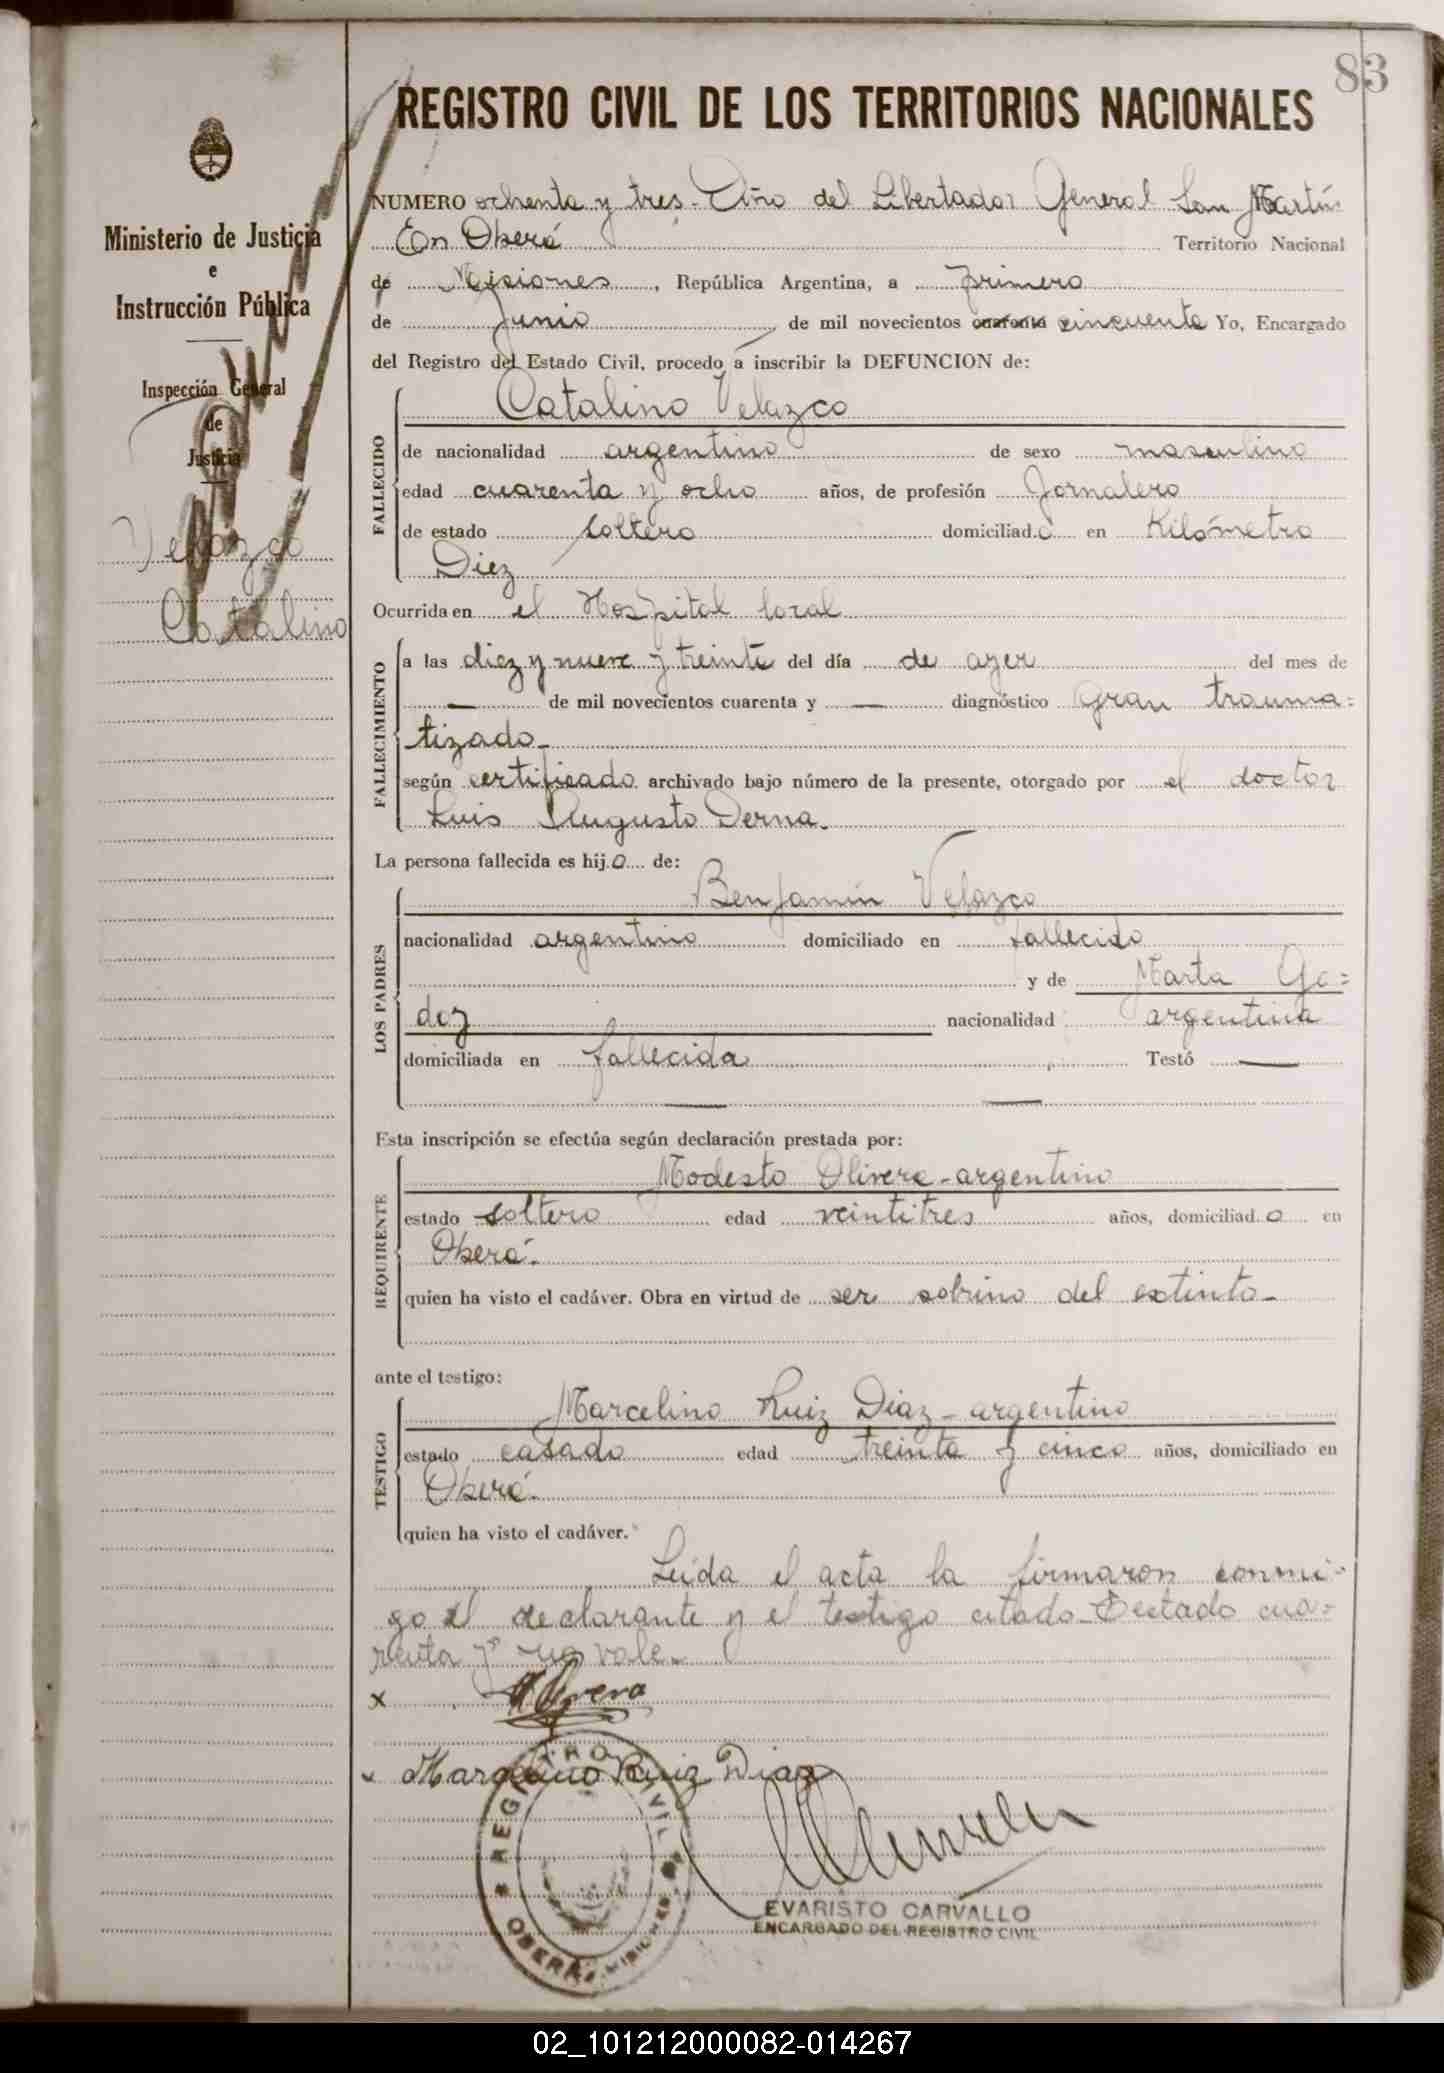 83
REGISTRO CIVIL DE LOS TERRITORIOS NACIONALES
Ministerio de Justicia
e
Instrucción Pública
Inspección General
de
Justicia
Velazco
Catalino
NUMERO ochenta y tres - Año del Libertador General San Martín
En Oberá Territorio Nacional
de Misiones, República Argentina, a primero
de Junio de mil novecientos cuarenta cincuenta Yo, Encargado
del Registro del Estado Civil, procedo a inscribir la DEFUNCION de:
FALLECIDO
Catalino Velazco
de nacionalidad argentino de sexo masculino
edad cuarenta y ocho años, de profesión Jornalero
de estado soltero domiciliad.o en Kilómetro
Diez
Ocurrida en el Hospital local
FALLECIMIENTO
a las diez y nueve y treinta del día de ayer del mes de
— de mil novecientos cuarenta y — diagnóstico gran trauma=
tizado-
según certificado archivado bajo número de la presente, otorgado por el doctor
Luis Augusto Derna.
La persona fallecida es hij.o de:
LOS PADRES
Benjamín Velazco
nacionalidad argentino domiciliado en fallecido
y de Marta Go=
doy nacionalidad argentina
domiciliada en fallecida Testó —
— —
Esta inscripción se efectúa según declaración prestada por:
REQUIRENTE
Modesto Olivera - argentino
estado soltero edad veintitres años, domiciliad.o en
Oberá.
quien ha visto el cadáver. Obra en virtud de ser sobrino del extinto-
ante el testigo:
TESTIGO
Marcelino Ruiz Diaz - argentino
estado casado edad treinta y cinco años, domiciliado en
Oberá.
quien ha visto el cadáver.
Leida el acta la firmaron conmi-
go el declarante y el testigo citado. Testado cua=
renta y no vale.
x
x Marcelino Ruiz Diaz
REGISTRO CIVIL
OBERÁ MISIONES
EVARISTO CARVALLO
ENCARGADO DEL REGISTRO CIVIL
02_101212000082-014267